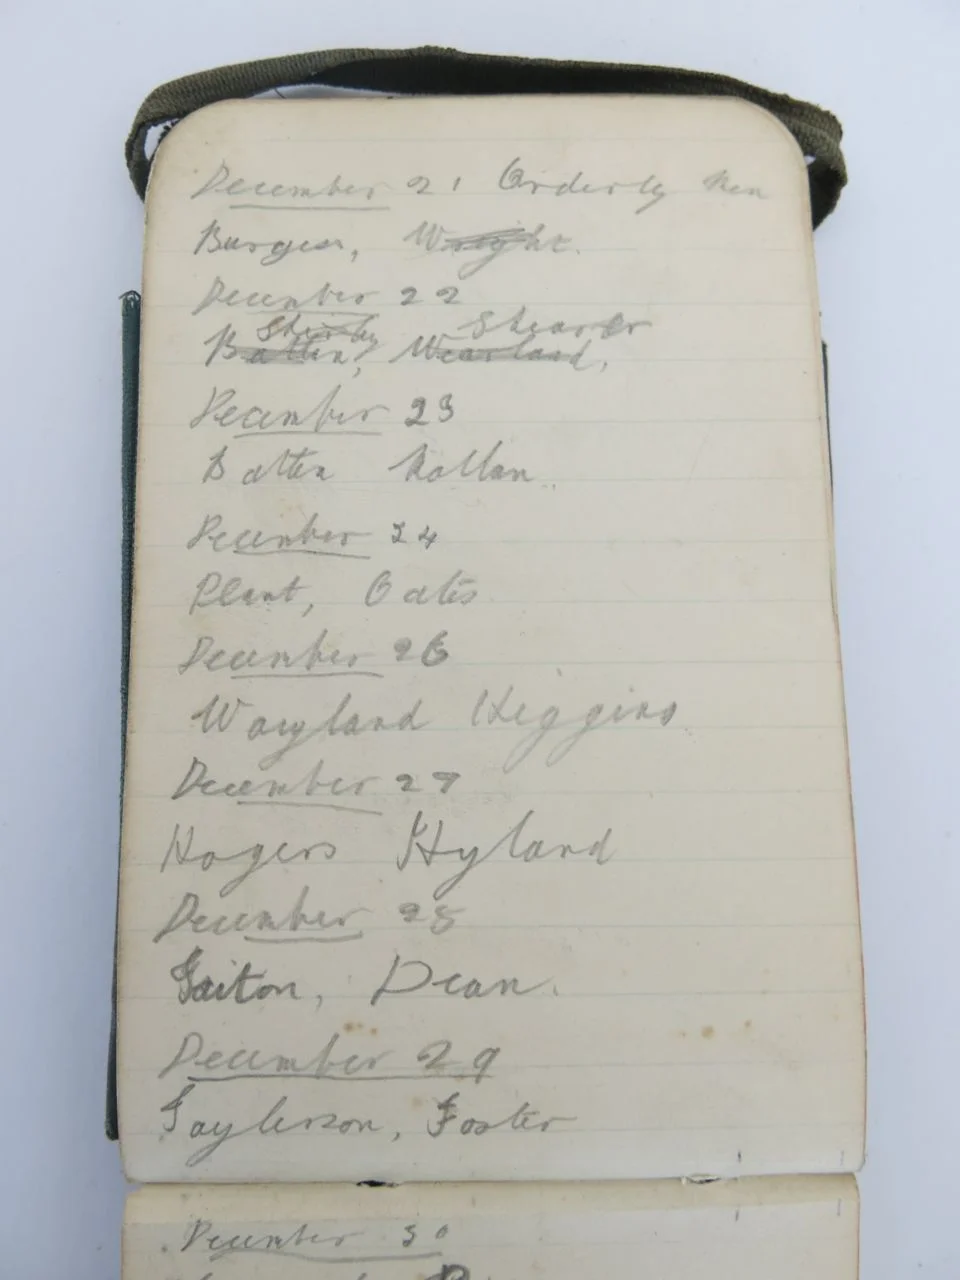 December 21 Orderly Men
Burgess, Wright.
December 22
Shearer
Batten, Wearland,
December 23
Batten
December 24
Plant, Oates
December 26
Wayland Higgins
December 27
Hogers Hyland
December 28
Gaiton, Dean.
December 29
Taylerson, Foster
December 30